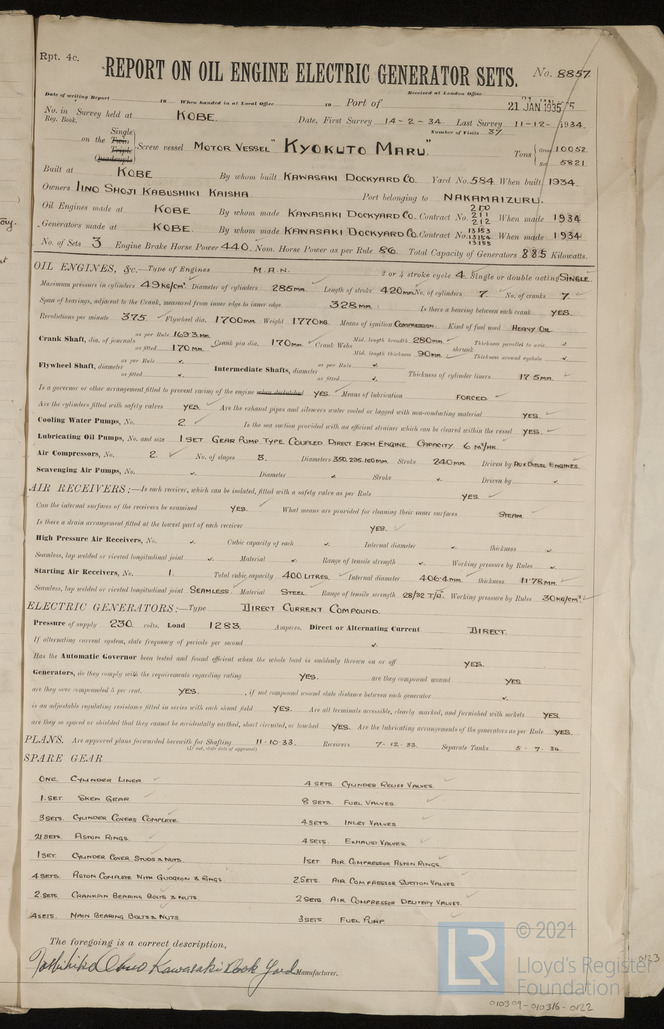 Rpt. 4c.
REPORT ON OIL ENGINE ELECTRIC GENERATOR SETS. No. 8857
Date of writing Report 19 When handed in at Local Office 19 Port of Received at London Office 21 JAN 1935
No. in Reg. Book. Survey held at KOBE. Date, First Survey 14-2-34. Last Survey 11-12-1934.
Number of Visits 37
on the Single Twin Triple Quadruple Screw vessel MOTOR VESSEL "KYOKUTO MARU." Tons Gross 10052 Net 5821
Built at KOBE By whom built KAWASAKI DOCKYARD CO. Yard No. 584 When built 1934.
Owners IINO SHOJI KABUSHIKI KAISHA Port belonging to NAKAMAIZURU.
Oil Engines made at KOBE By whom made KAWASAKI DOCKYARD CO. Contract No. 210 211 212 When made 1934
Generators made at KOBE. By whom made KAWASAKI DOCKYARD CO. Contract No. 13153 13154 13155 When made 1934
No. of Sets 3 Engine Brake Horse Power 440. Nom. Horse Power as per Rule 86 Total Capacity of Generators 885 Kilowatts.
OIL ENGINES, &c.—Type of Engines M.A.N. 2 or 4 stroke cycle 4 Single or double acting SINGLE.
Maximum pressure in cylinders 49 KG/CM² Diameter of cylinders 285MM. Length of stroke 420MM. No. of cylinders 7. No. of cranks 7
Span of bearings, adjacent to the Crank, measured from inner edge to inner edge 328MM. Is there a bearing between each crank YES.
Revolutions per minute 375. Flywheel dia. 1700MM. Weight 1770KG. Means of ignition COMPRESSION Kind of fuel used HEAVY OIL
Crank Shaft, dia. of journals as per Rule 169.3MM. as fitted 170MM. Crank pin dia. 170MM. Crank Webs Mid. length breadth 280MM. Mid. length thickness 90MM. shrunk Thickness parallel to axis Thickness around eyehole
Flywheel Shaft, diameter as per Rule as fitted Intermediate Shafts, diameter as per Rule as fitted Thickness of cylinder liners 17.5MM.
Is a governor or other arrangement fitted to prevent racing of the engine when declutched YES. Means of lubrication FORCED.
Are the cylinders fitted with safety valves YES. Are the exhaust pipes and silencers water cooled or lagged with non-conducting material YES.
Cooling Water Pumps, No. 2. Is the sea suction provided with an efficient strainer which can be cleared within the vessel YES.
Lubricating Oil Pumps, No. and size 1 SET GEAR PUMP TYPE COUPLED DIRECT EACH ENGINE. CAPACITY 6 M³/HR.
Air Compressors, No. 2. No. of stages 3. Diameters 350, 295, 100MM. Stroke 240MM. Driven by AUX DIESEL ENGINES.
Scavenging Air Pumps, No. Diameter Stroke Driven by
AIR RECEIVERS:—Is each receiver, which can be isolated, fitted with a safety valve as per Rule YES.
Can the internal surfaces of the receivers be examined YES. What means are provided for cleaning their inner surfaces STEAM.
Is there a drain arrangement fitted at the lowest part of each receiver YES.
High Pressure Air Receivers, No. Cubic capacity of each Internal diameter thickness
Seamless, lap welded or riveted longitudinal joint Material Range of tensile strength Working pressure by Rules
Starting Air Receivers, No. 1. Total cubic capacity 400 LITRES. Internal diameter 406.4MM. thickness 11.78MM.
Seamless, lap welded or riveted longitudinal joint SEAMLESS. Material STEEL Range of tensile strength 28/32 T/□" Working pressure by Rules 30KG/CM²
ELECTRIC GENERATORS:—Type DIRECT CURRENT COMPOUND.
Pressure of supply 230. volts. Load 1283. Amperes. Direct or Alternating Current DIRECT.
If alternating current system, state frequency of periods per second
Has the Automatic Governor been tested and found efficient when the whole load is suddenly thrown on or off YES.
Generators, do they comply with the requirements regarding rating YES. are they compound wound YES.
are they over compounded 5 per cent. YES. , if not compound wound state distance between each generator
is an adjustable regulating resistance fitted in series with each shunt field YES. Are all terminals accessible, clearly marked, and furnished with sockets YES.
are they so spaced or shielded that they cannot be accidentally earthed, short circuited, or touched YES. Are the lubricating arrangements of the generators as per Rule YES.
PLANS. Are approved plans forwarded herewith for Shafting 11-10-33. Receivers 7-12-33. Separate Tanks 5-7-34.
(If not, state date of approval)
SPARE GEAR
ONE. CYLINDER LINER 4 SETS. CYLINDER RELIEF VALVES.
1. SET. SKEW GEAR 8 SETS. FUEL VALVES.
3 SETS. CYLINDER COVERS COMPLETE. 4 SETS. INLET VALVES
21 SETS. PISTON RINGS. 4 SETS. EXHAUST VALVES.
1 SET. CYLINDER COVER STUDS & NUTS. 1 SET AIR COMPRESSOR PISTON RINGS.
4 SETS. PISTON COMPLETE WITH GUDGEON & RINGS. 2 SETS. AIR COMPRESSOR SUCTION VALVES
2. SETS. CRANKPIN BEARING BOLTS & NUTS 2 SETS. AIR COMPRESSOR DELIVERY VALVES.
4 SETS. MAIN BEARING BOLTS & NUTS 3 SETS. FUEL PUMP
The foregoing is a correct description,
Kawasaki Dock Yard Manufacturer.
© 2021
LR Lloyd's Register
Foundation
010309-010316-0122